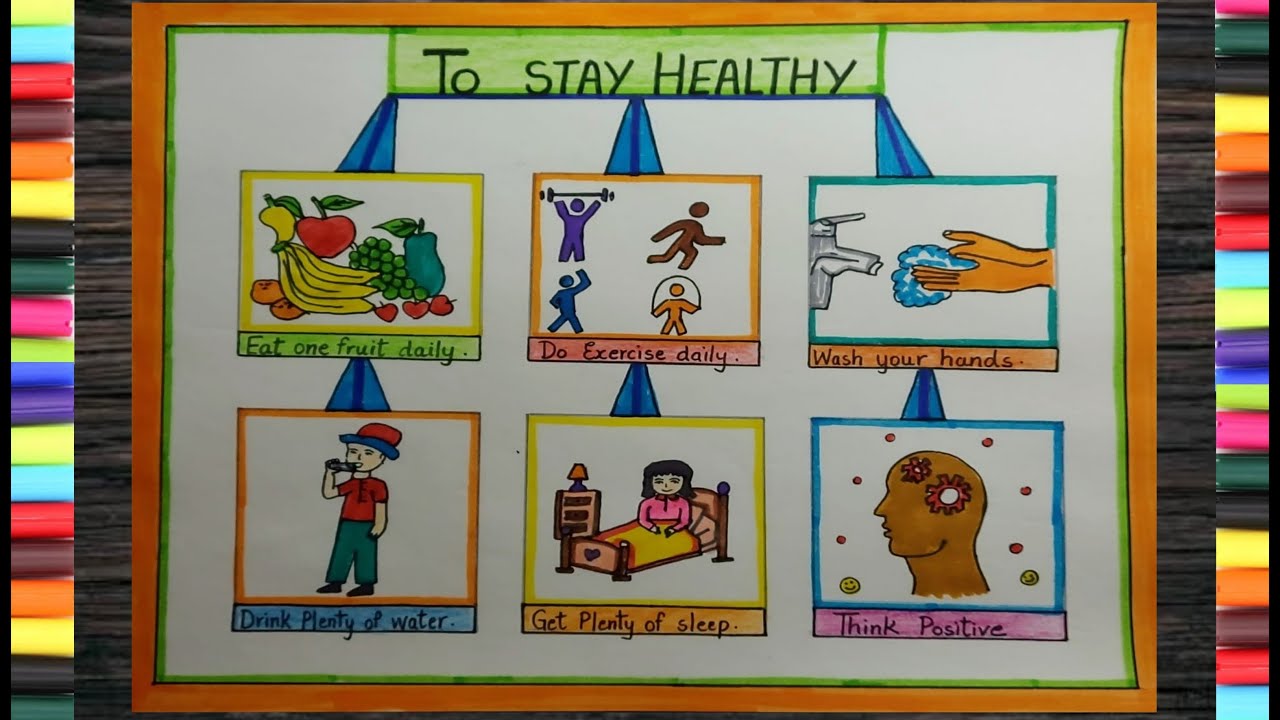 To STAY HEALTHY
Eat one fruit daily.
Do Exercise daily.
Wash your hands.
Drink Plenty of water.
Get Plenty of sleep.
Think Positive